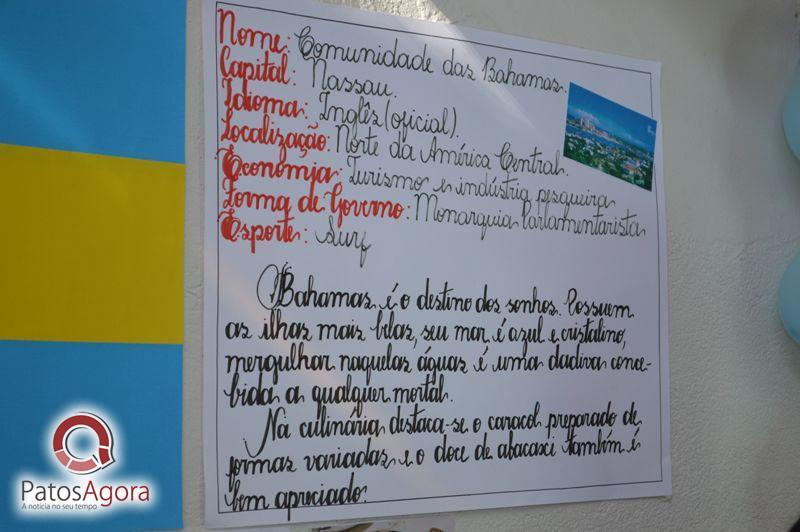 Nome: Comunidade das Bahamas.
Capital: Nassau.
Idioma: Inglês (oficial).
Localização: Norte da América Central.
Economia: Turismo e indústria pesqueira
Forma de Governo: Monarquia Parlamentarista
Esporte: Surf
Bahamas é o destino dos sonhos. Possuem
as ilhas mais belas, seu mar é azul e cristalino,
mergulhar naquelas águas é uma dadiva conce-
bida a qualquer mortal.
Na culinária destaca-se o caracol preparado de
formas variadas e o doce de abacaxi também é
bem apreciado.
PatosAgora
A notícia no seu tempo